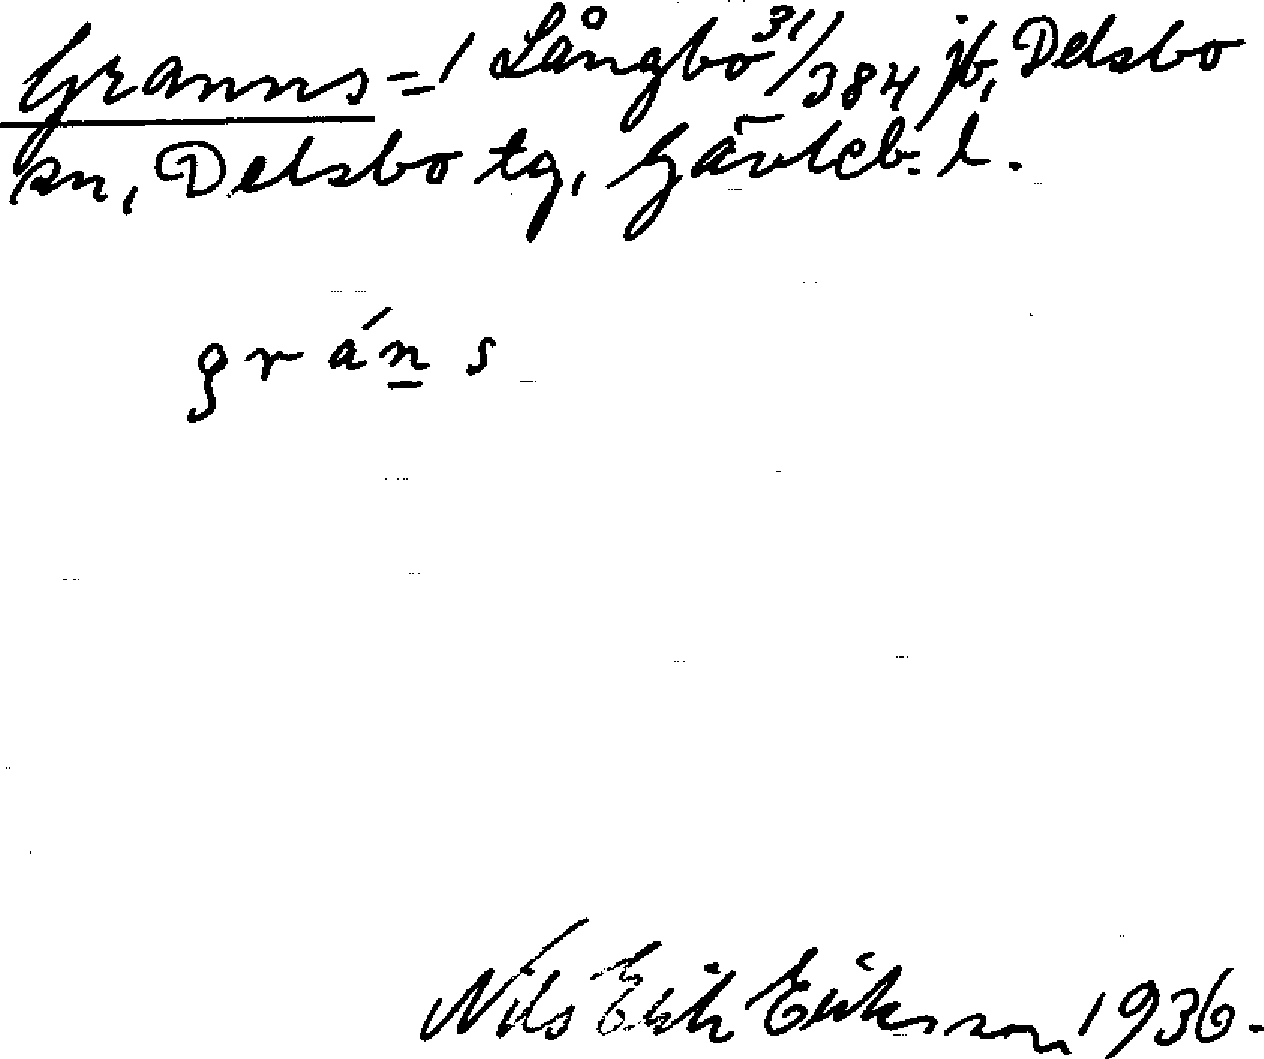 Granns = / Långbo 31/384 jb, Delsbo
sn, Delsbo tg, Gävleb. l.
gráṉs
Nils Erik Eriksson 1936.